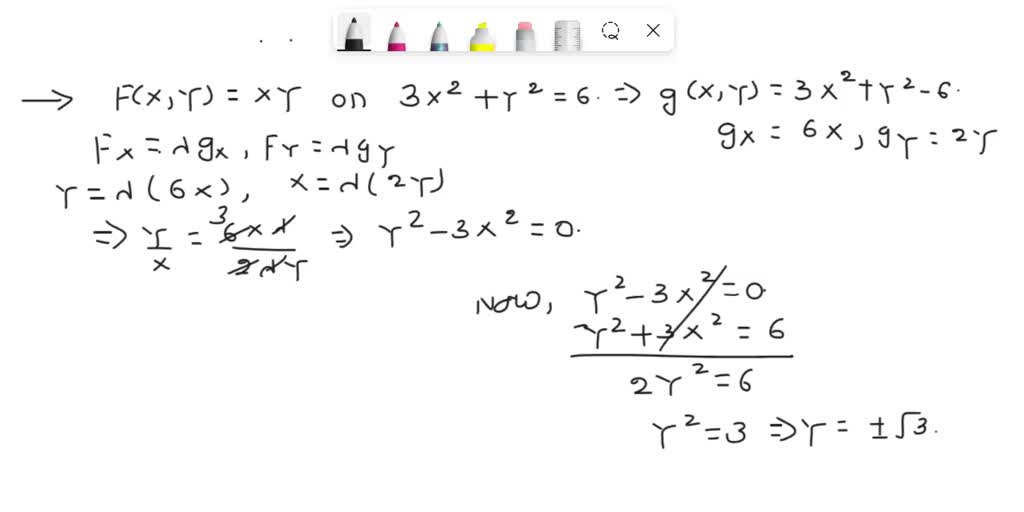 → F(x,Y) = xY on 3x² + Y² = 6. ⇒ g(x,Y) = 3x² + Y² - 6.
gx = 6x, gY = 2Y
Fx = λgx, FY = λgY
Y = λ(6x), x = λ(2Y)
⇒ Y/x = 3 6xλ/2λY ⇒ Y² - 3x² = 0.
Now, Y² - 3x² = 0.
Y² + 3x² = 6
2Y² = 6
Y² = 3 ⇒ Y = ±√3.